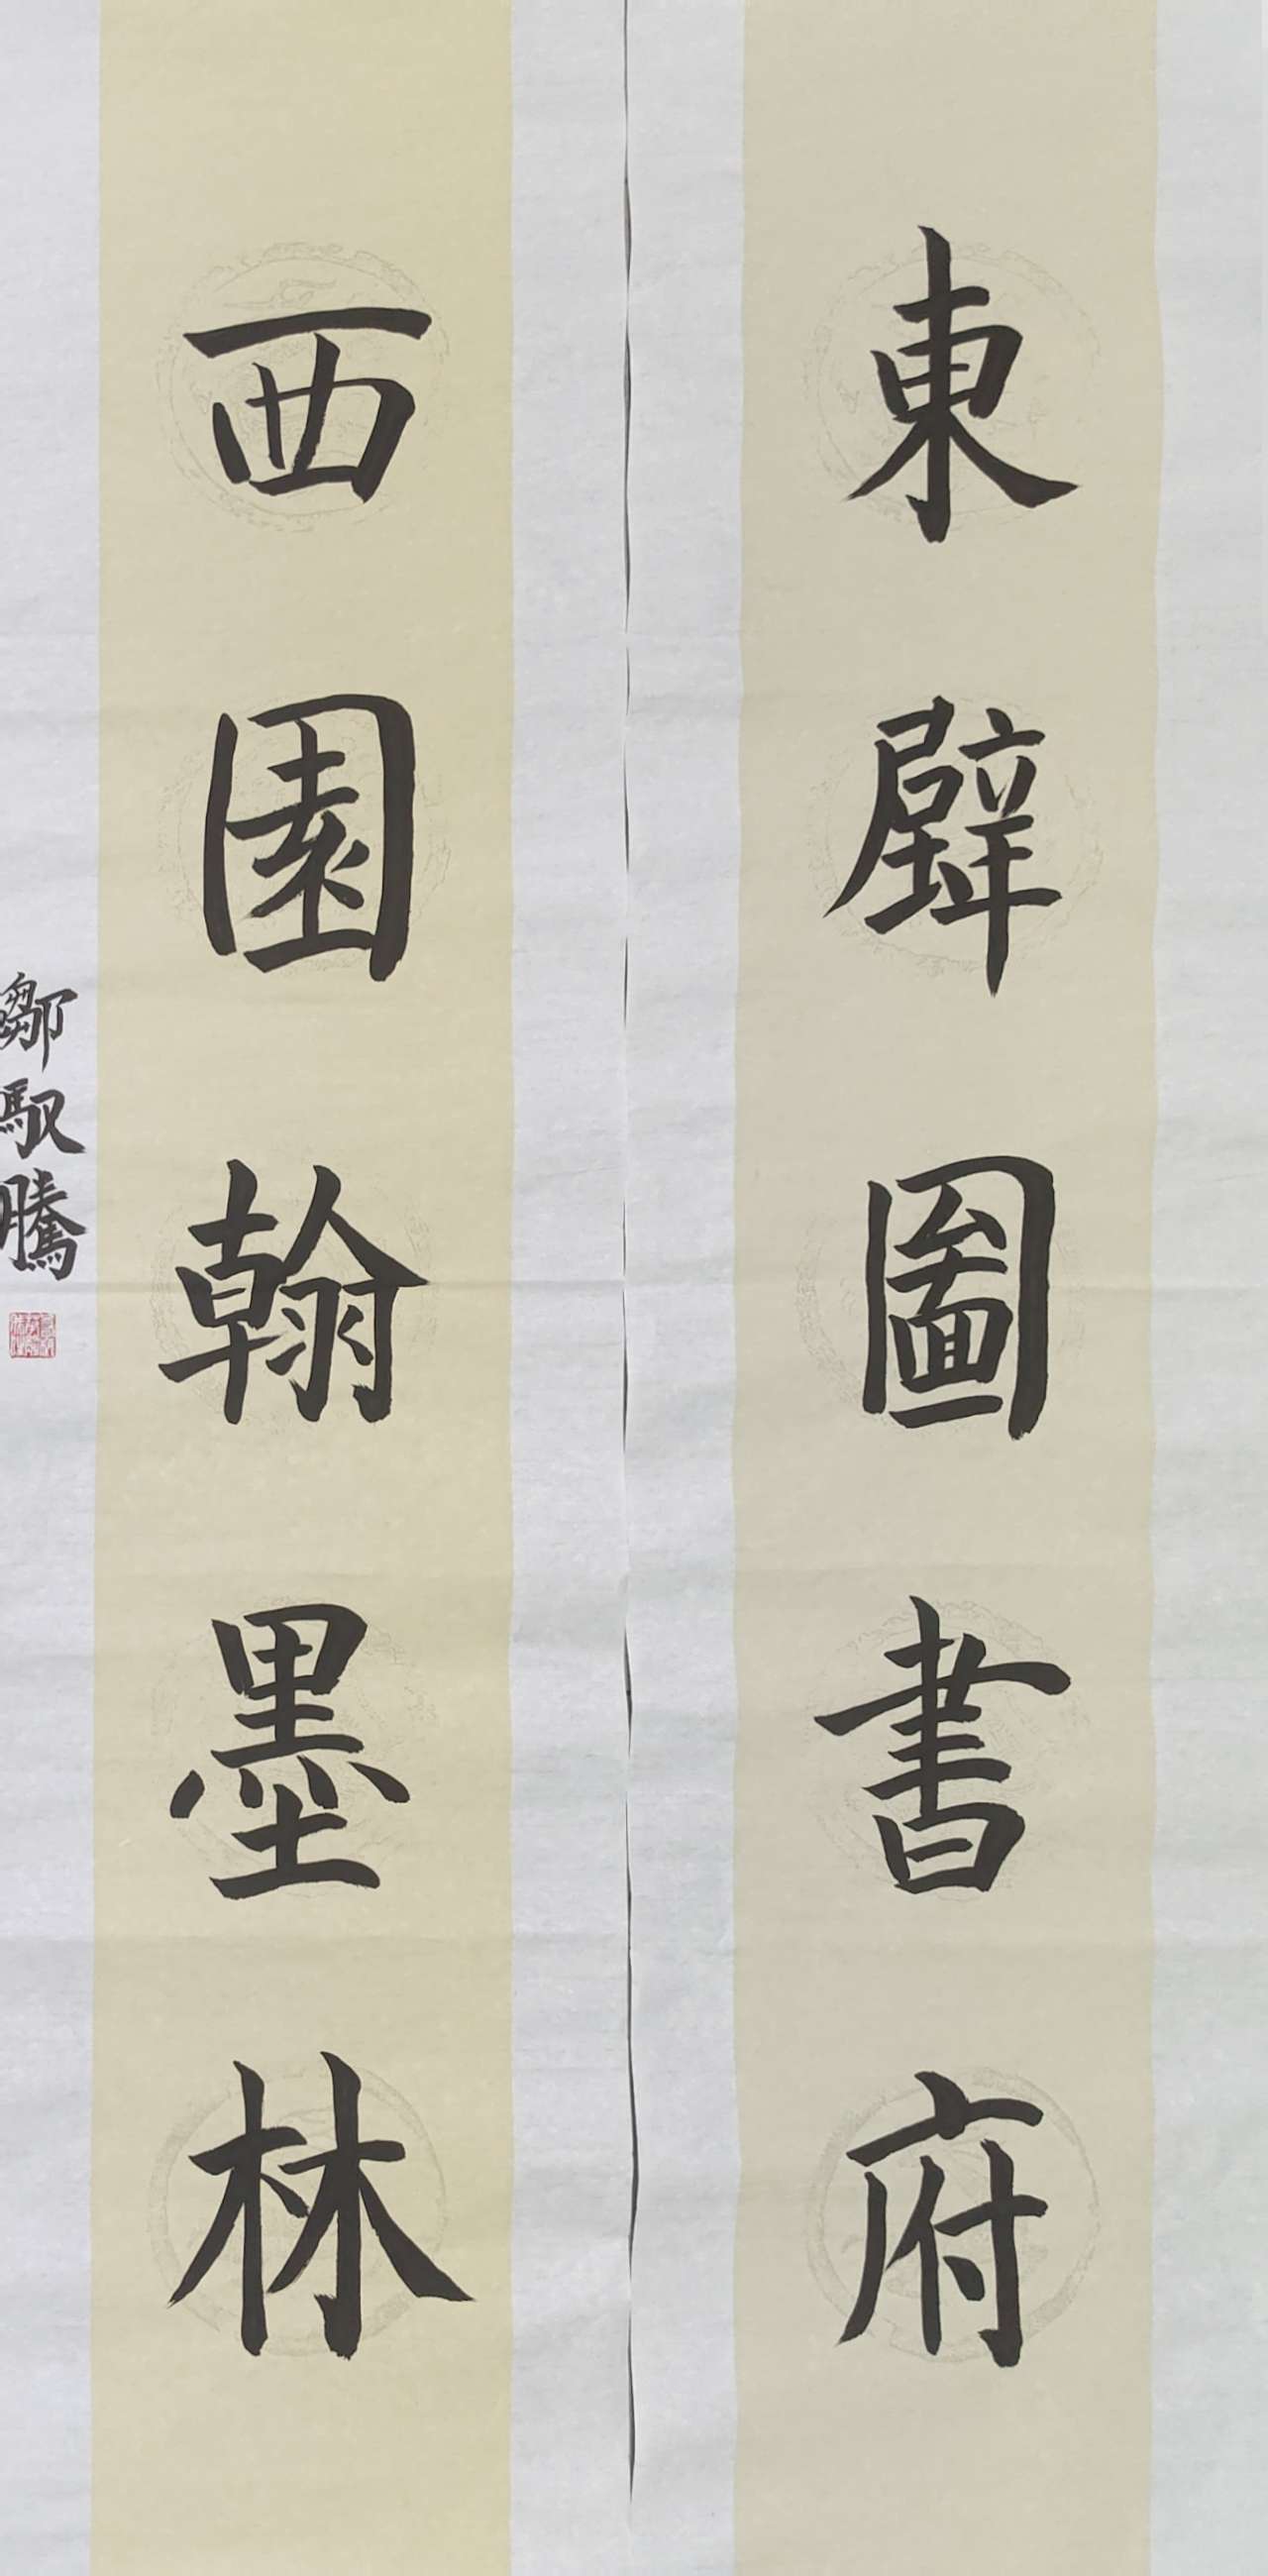 東壁圖書府
西園翰墨林
鄒馭騰